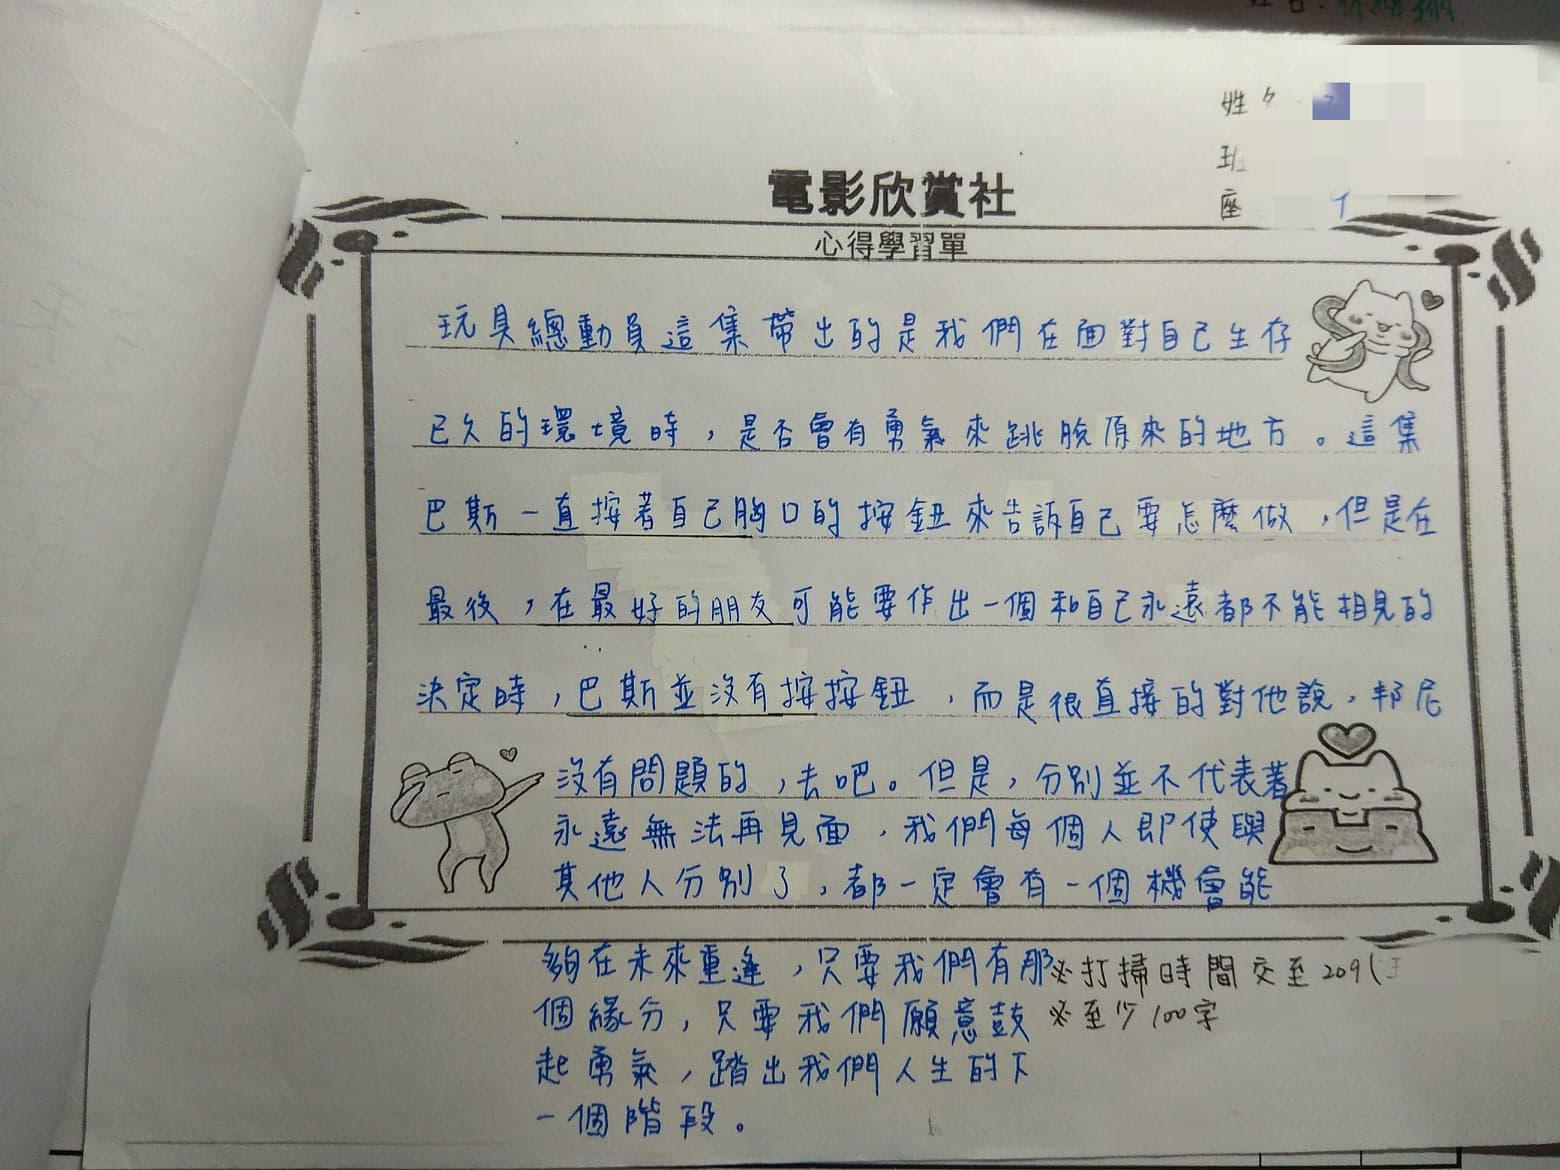 姓名
班
座
電影欣賞社
心得學習單
玩具總動員這集帶出的是我們在面對自己生存
已久的環境時，是否會有勇氣來跳脫原來的地方。這集
巴斯一直按著自己胸口的按鈕來告訴自己要怎麼做，但是在
最後，在最好的朋友可能要作出一個和自己永遠都不能相見的
決定時，巴斯並沒有按按鈕，而是很直接的對他說，邦尼
沒有問題的，去吧。但是，分別並不代表著
永遠無法再見面，我們每個人即使與
其他人分別了，都一定會有一個機會能
夠在未來重逢，只要我們有那
個緣分，只要我們願意鼓
起勇氣，踏出我們人生的下
一個階段。
※打掃時間交至209(
※至少100字